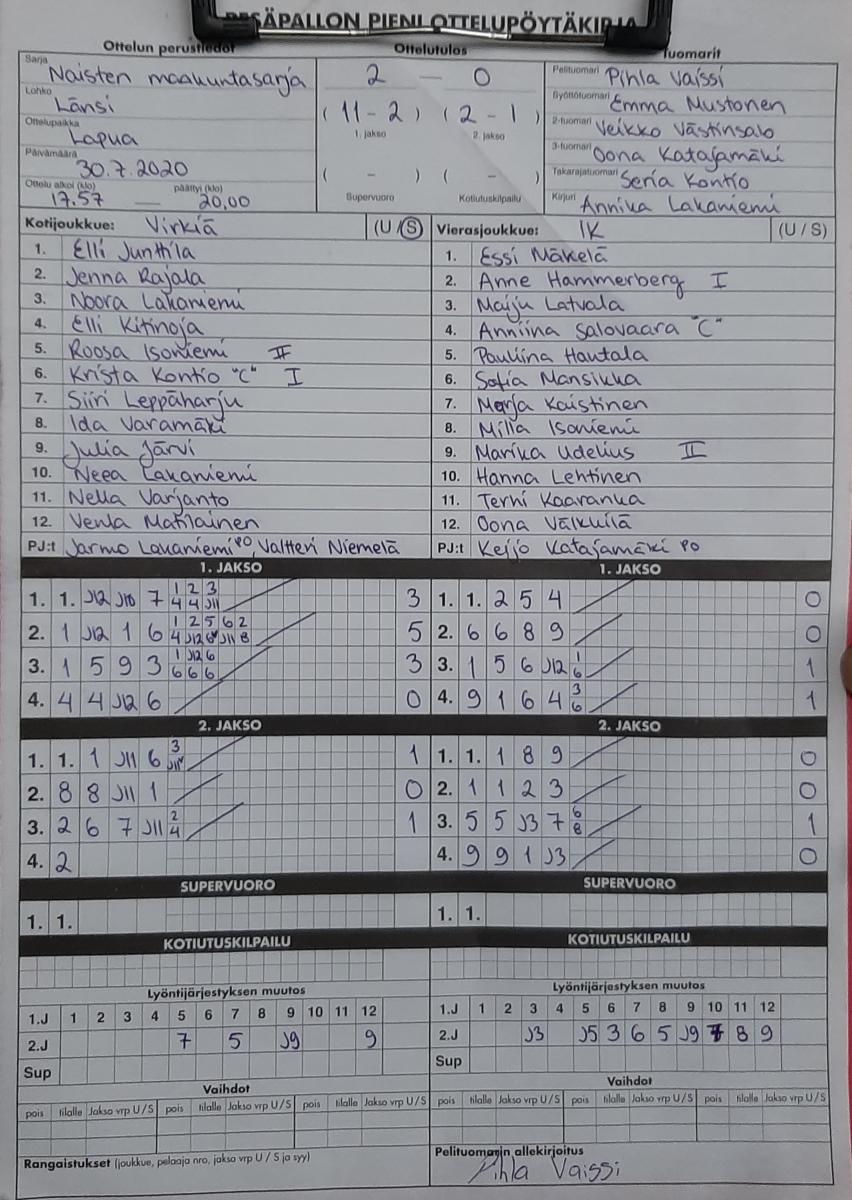 PESÄPALLON PIENI OTTELUPÖYTÄKIRJA
Ottelun perustiedot Ottelutulos Tuomarit
Sarja Naisten maakuntasarja
Lohko Länsi
Ottelupaikka Lapua
Päivämäärä 30.7.2020
Ottelu alkoi (klo) päättyi (klo)
17.57 — 20.00
2 — 0
(11 - 2) (2 - 1)
1. jakso 2. jakso
( - ) ( - )
Supervuoro Kotiutuskilpailu
Pelituomari Pihla Vaissi
Syöttötuomari Emma Mustonen
2-tuomari Veikko Västinsalo
3-tuomari Oona Katajamäki
Takarajatuomari Seria Kontio
Kirjuri Annika Lakaniemi
Kotijoukkue: Virkiä (U/S)
1. Elli Junttila
2. Jenna Rajala
3. Noora Lakaniemi
4. Elli Kitinoja
5. Roosa Isoniemi II
6. Krista Kontio "C" I
7. Siiri Leppäharju
8. Ida Varamäki
9. Julia Järvi
10. Neea Lakaniemi
11. Nella Varjanto
12. Venla Matilainen
PJ:t Jarmo Lakaniemi PO, Valtteri Niemelä
Vierasjoukkue: IK (U / S)
1. Essi Mäkelä
2. Anne Hammerberg I
3. Maiju Latvala
4. Anniina Salovaara "C"
5. Pauliina Hautala
6. Sofia Mansikka
7. Marja Kaistinen
8. Milla Isoniemi
9. Marika Udelius II
10. Hanna Lehtinen
11. Terhi Kaaranka
12. Oona Välkkilä
PJ:t Keijo Katajamäki PO
1. JAKSO
1. 1. J12 J10 7 1 2 3 3
4 4 J11
2. 1 J12 1 6 1 2 5 6 2 5
4 J12 8 J11 8
3. 1 5 9 3 1 J12 6 3
6 6 6
4. 4 4 J12 6 0
2. JAKSO
1. 1. 1 J11 6 3 1
J11
2. 8 8 J11 1 0
3. 2 6 7 J11 2 1
4
4. 2
SUPERVUORO
1. 1.
KOTIUTUSKILPAILU
Lyöntijärjestyksen muutos
1.J 1 2 3 4 5 6 7 8 9 10 11 12
2.J 7 5 J9 9
Sup
Vaihdot
pois tilalle Jakso vrp U/S pois tilalle Jakso vrp U/S pois tilalle Jakso vrp U/S
Rangaistukset (joukkue, pelaaja nro, jakso vrp U / S ja syy)
1. JAKSO
1. 1. 2 5 4 0
2. 6 6 8 9 0
3. 1 5 6 J12 1 1
6
4. 9 1 6 4 3 1
6
2. JAKSO
1. 1. 1 8 9 0
2. 1 1 2 3 0
3. 5 5 J3 7 6 1
8
4. 9 9 1 J3 0
SUPERVUORO
1. 1.
KOTIUTUSKILPAILU
Lyöntijärjestyksen muutos
1.J 1 2 3 4 5 6 7 8 9 10 11 12
2.J J3 J5 3 6 5 J9 7 8 9
Sup
Vaihdot
pois tilalle Jakso vrp U/S pois tilalle Jakso vrp U/S pois tilalle Jakso vrp U/S
Pelituomarin allekirjoitus
Pihla Vaissi